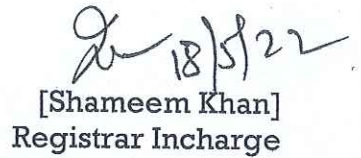 18/5/22
[Shameem Khan]
Registrar Incharge